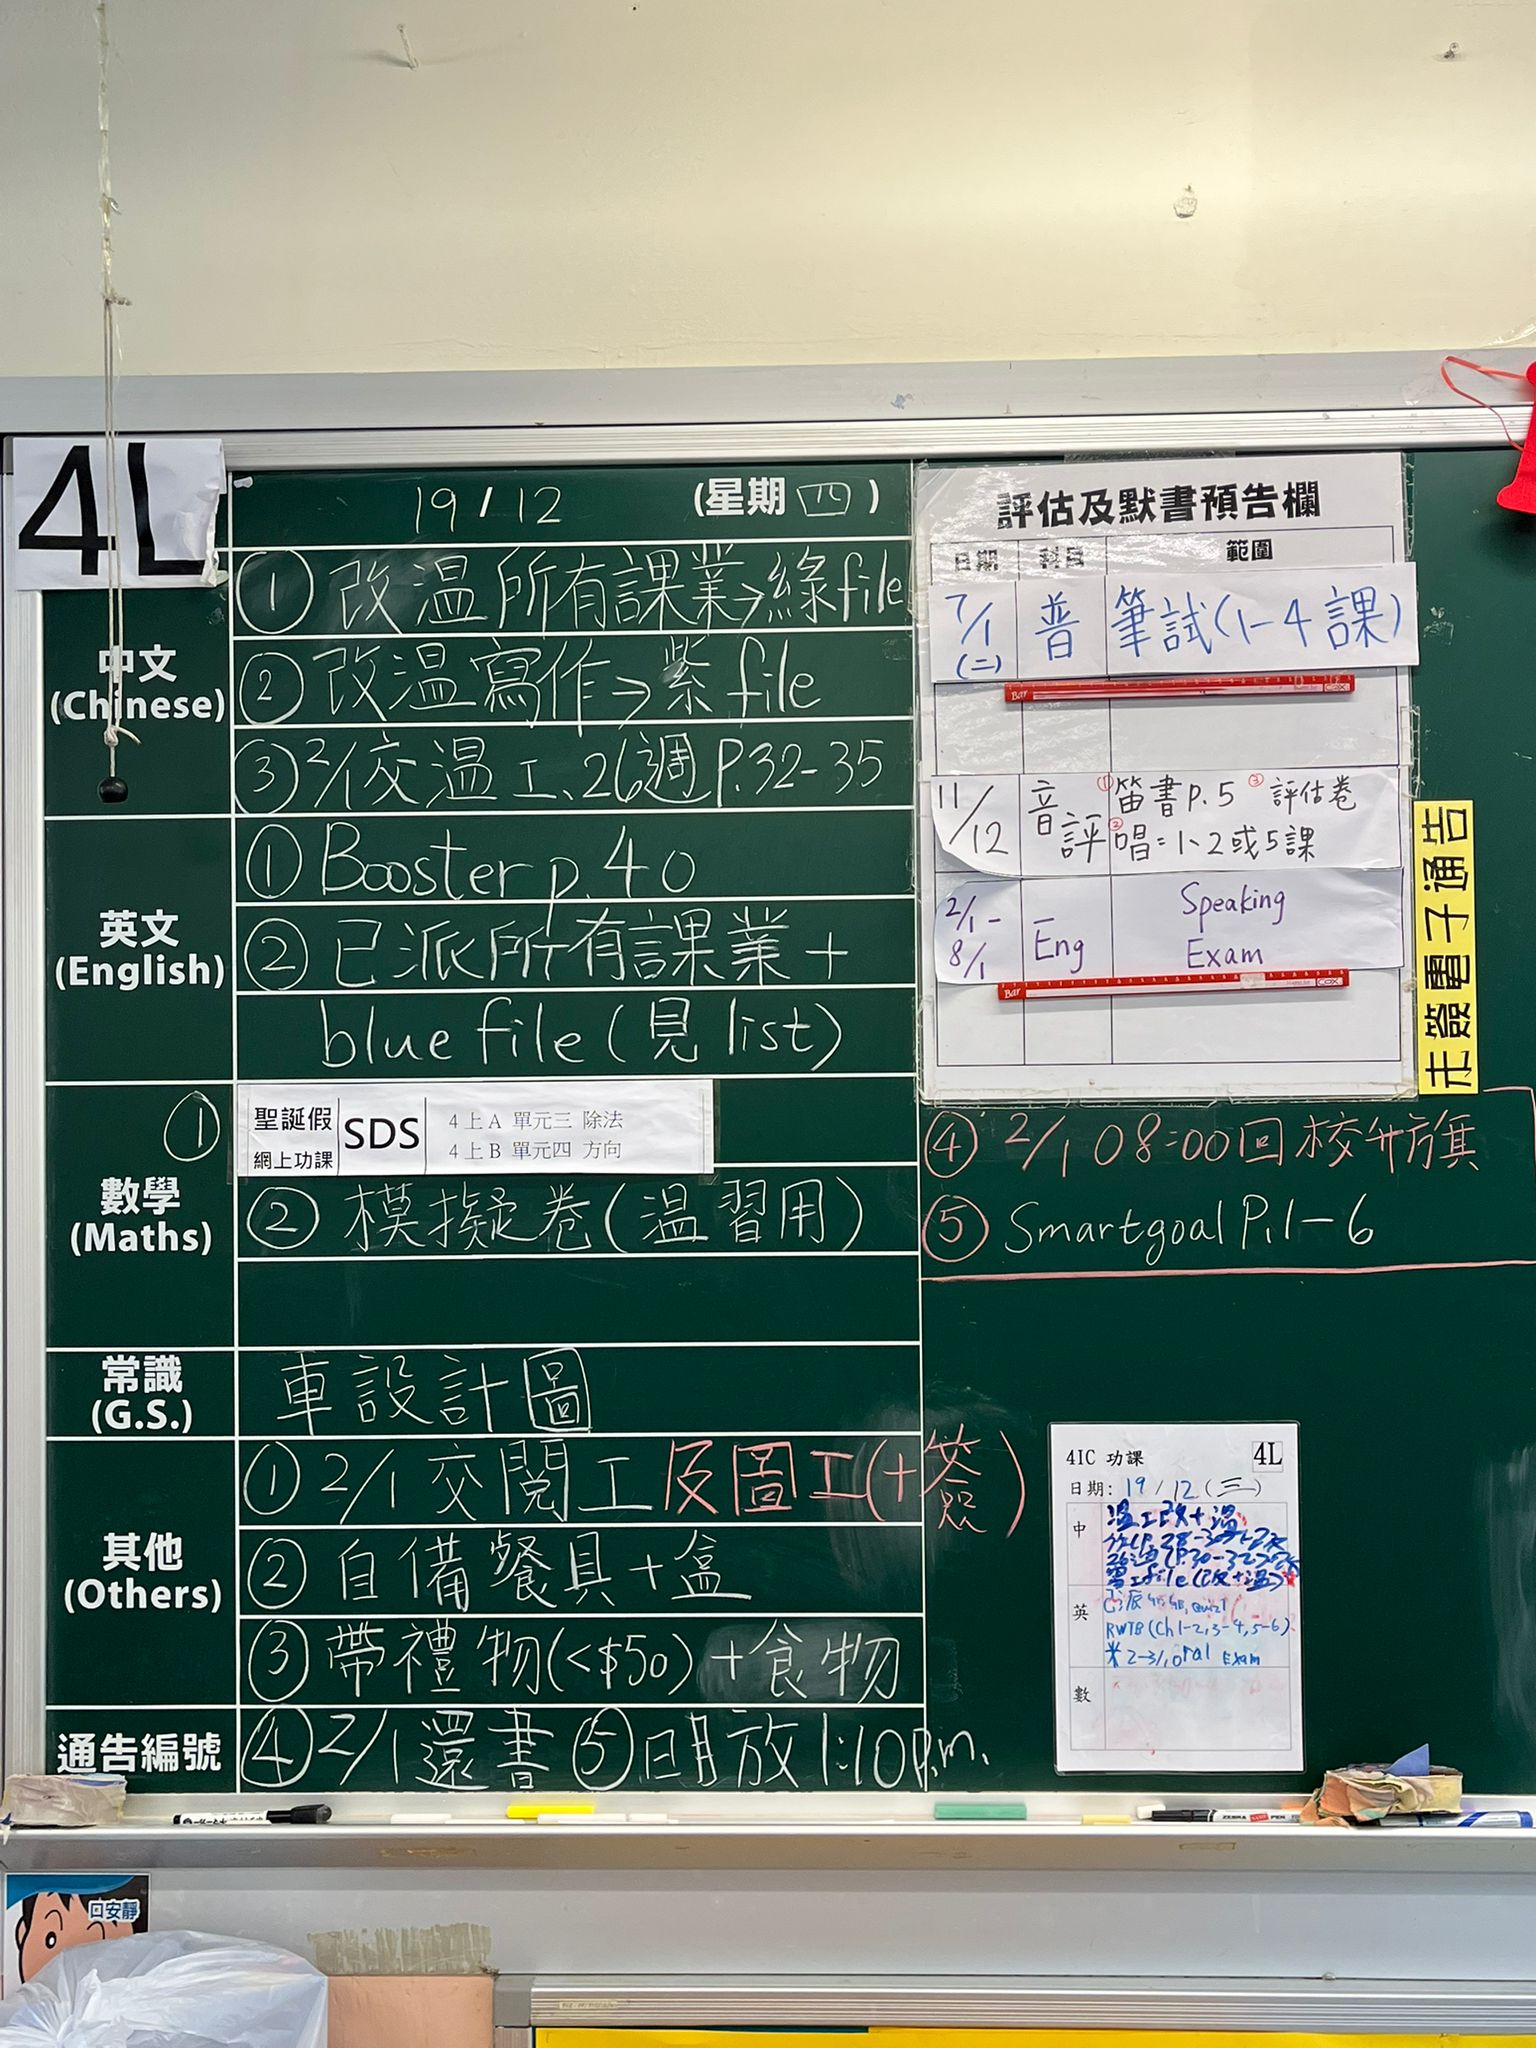 4L
19/12 (星期四)
中文
(Chinese)
① 改温所有課業→綠file
② 改温寫作→紫file
③ 2/1交温工、26週P.32-35
英文
(English)
① Booster p.40
② 已派所有課業+
blue file(見list)
數學
(Maths)
①
聖誕假
網上功課
SDS
4上A 單元三 除法
4上B 單元四 方向
② 模擬卷(温習用)
常識
(G.S.)
車設計圖
其他
(Others)
① 2/1交閱工及圖工(+簽)
② 自備餐具+盒
③ 帶禮物(<$50)+食物
通告編號
④ 2/1還書 ⑤ 明放1:10p.m.
評估及默書預告欄
日期 科目 範圍
7/1(二) 普 筆試(1-4課)
Bar COX
11/12 音評 ①笛書P.5 ③評估卷
②唱:1、2或5課
2/1-8/1 Eng Speaking
Exam
Bar COX
未簽電子通告
④ 2/1 08:00回校升旗
⑤ Smartgoal P.1-6
4IC 功課 4L
日期: 19/12(三)
中
温工改+温
英
RWTB(Ch1-2,3-4,5-6)
Oral Exam
數
ZEBRA PEN
口安靜